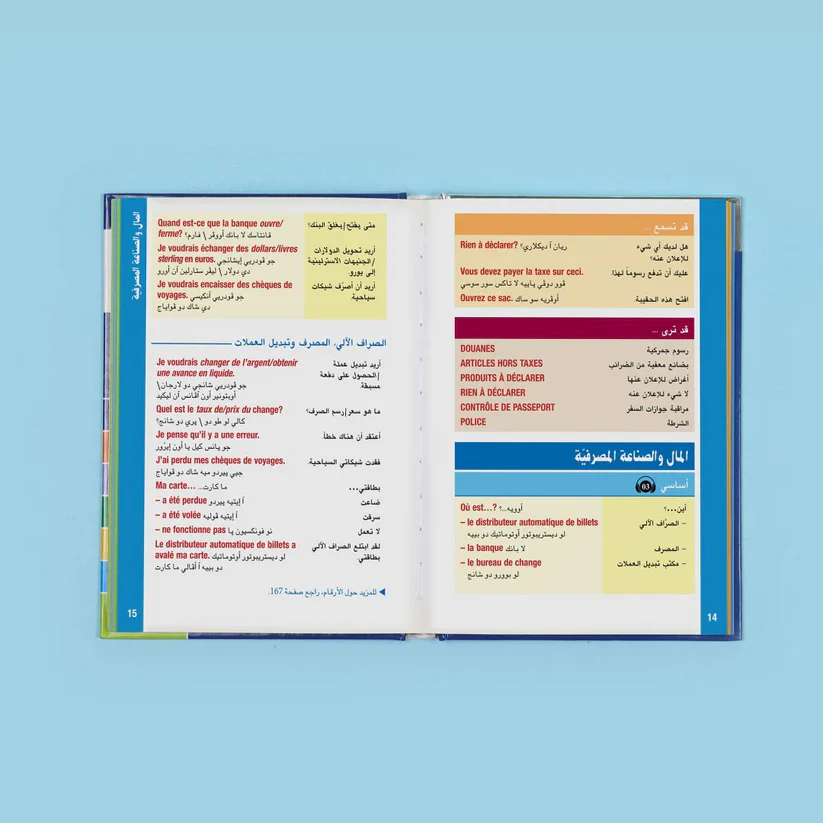 قد تسمع ...
هل لديك أي شيء
للإعلان عنه؟
Rien à déclarer? ريان أ ديكلاري؟
عليك أن تدفع رسوماً لهذا.
Vous devez payer la taxe sur ceci.
ڤوو دوڤي پاييه لا تاكس سور سوسي
افتح هذه الحقيبة.
Ouvrez ce sac. أوڤريه سو ساك
قد ترى ...
رسوم جمركية DOUANES
بضائع معفية من الضرائب ARTICLES HORS TAXES
أغراض للإعلان عنها PRODUITS À DÉCLARER
لا شيء للإعلان عنه RIEN À DÉCLARER
مراقبة جوازات السفر CONTRÔLE DE PASSEPORT
الشرطة POLICE
المال والصناعة المصرفيّة
أساسي 03
أين...؟ Où est...? أوويه...؟
– الصرّاف الآلي – le distributeur automatique de billets
لو ديستريبوتور أوتوماتيك دو بييه
– المصرف – la banque لا بانك
– مكتب تبديل العملات – le bureau de change
لو بوورو دو شانج
14
المال والصناعة المصرفية
متى يفتح/يغلق البنك؟ Quand est-ce que la banque ouvre/
ferme? قانتاسك لا بانك أووڤر \ فارم؟
أريد تحويل الدولارات Je voudrais échanger des dollars/livres
/الجنيهات الاسترلينية sterling en euros. جو ڤودريي إيشانجي
إلى يورو. دي دولار \ ليڤر ستارلين آن أورو
أريد أن أصرّف شيكات Je voudrais encaisser des chèques de
سياحية. voyages. جو ڤودريي أنكيسي
دي شاك دو ڤواياج
الصراف الآلي، المصرف وتبديل العملات
أريد تبديل عملة Je voudrais changer de l'argent/obtenir
/الحصول على دفعة une avance en liquide.
مسبقة. جو ڤودريي شانجي دو لارجان\
أوبتونير أون أڤانس أن ليكيد
ما هو سعر/رسم الصرف؟ Quel est le taux de/prix du change?
كالي لو طو دو \ پري دو شانج؟
أعتقد أن هناك خطأ. Je pense qu'il y a une erreur.
جو پانس كيل يا أون إيرّور
فقدت شيكاتي السياحية. J'ai perdu mes chèques de voyages.
جيي پيردو ميه شاك دو ڤواياج
بطاقتي... Ma carte... ما كارت...
ضاعت – a été perdue أ إيتيه پيردو
سرقت – a été volée أ إيتيه ڤوليه
لا تعمل – ne fonctionne pas نو فونكسيون پا
لقد ابتلع الصراف الآلي Le distributeur automatique de billets a
بطاقتي. avalé ma carte. لو ديستريبوتور أوتوماتيك
دو بييه أ أڤالي ما كارت
للمزيد حول الأرقام، راجع صفحة 167.
15